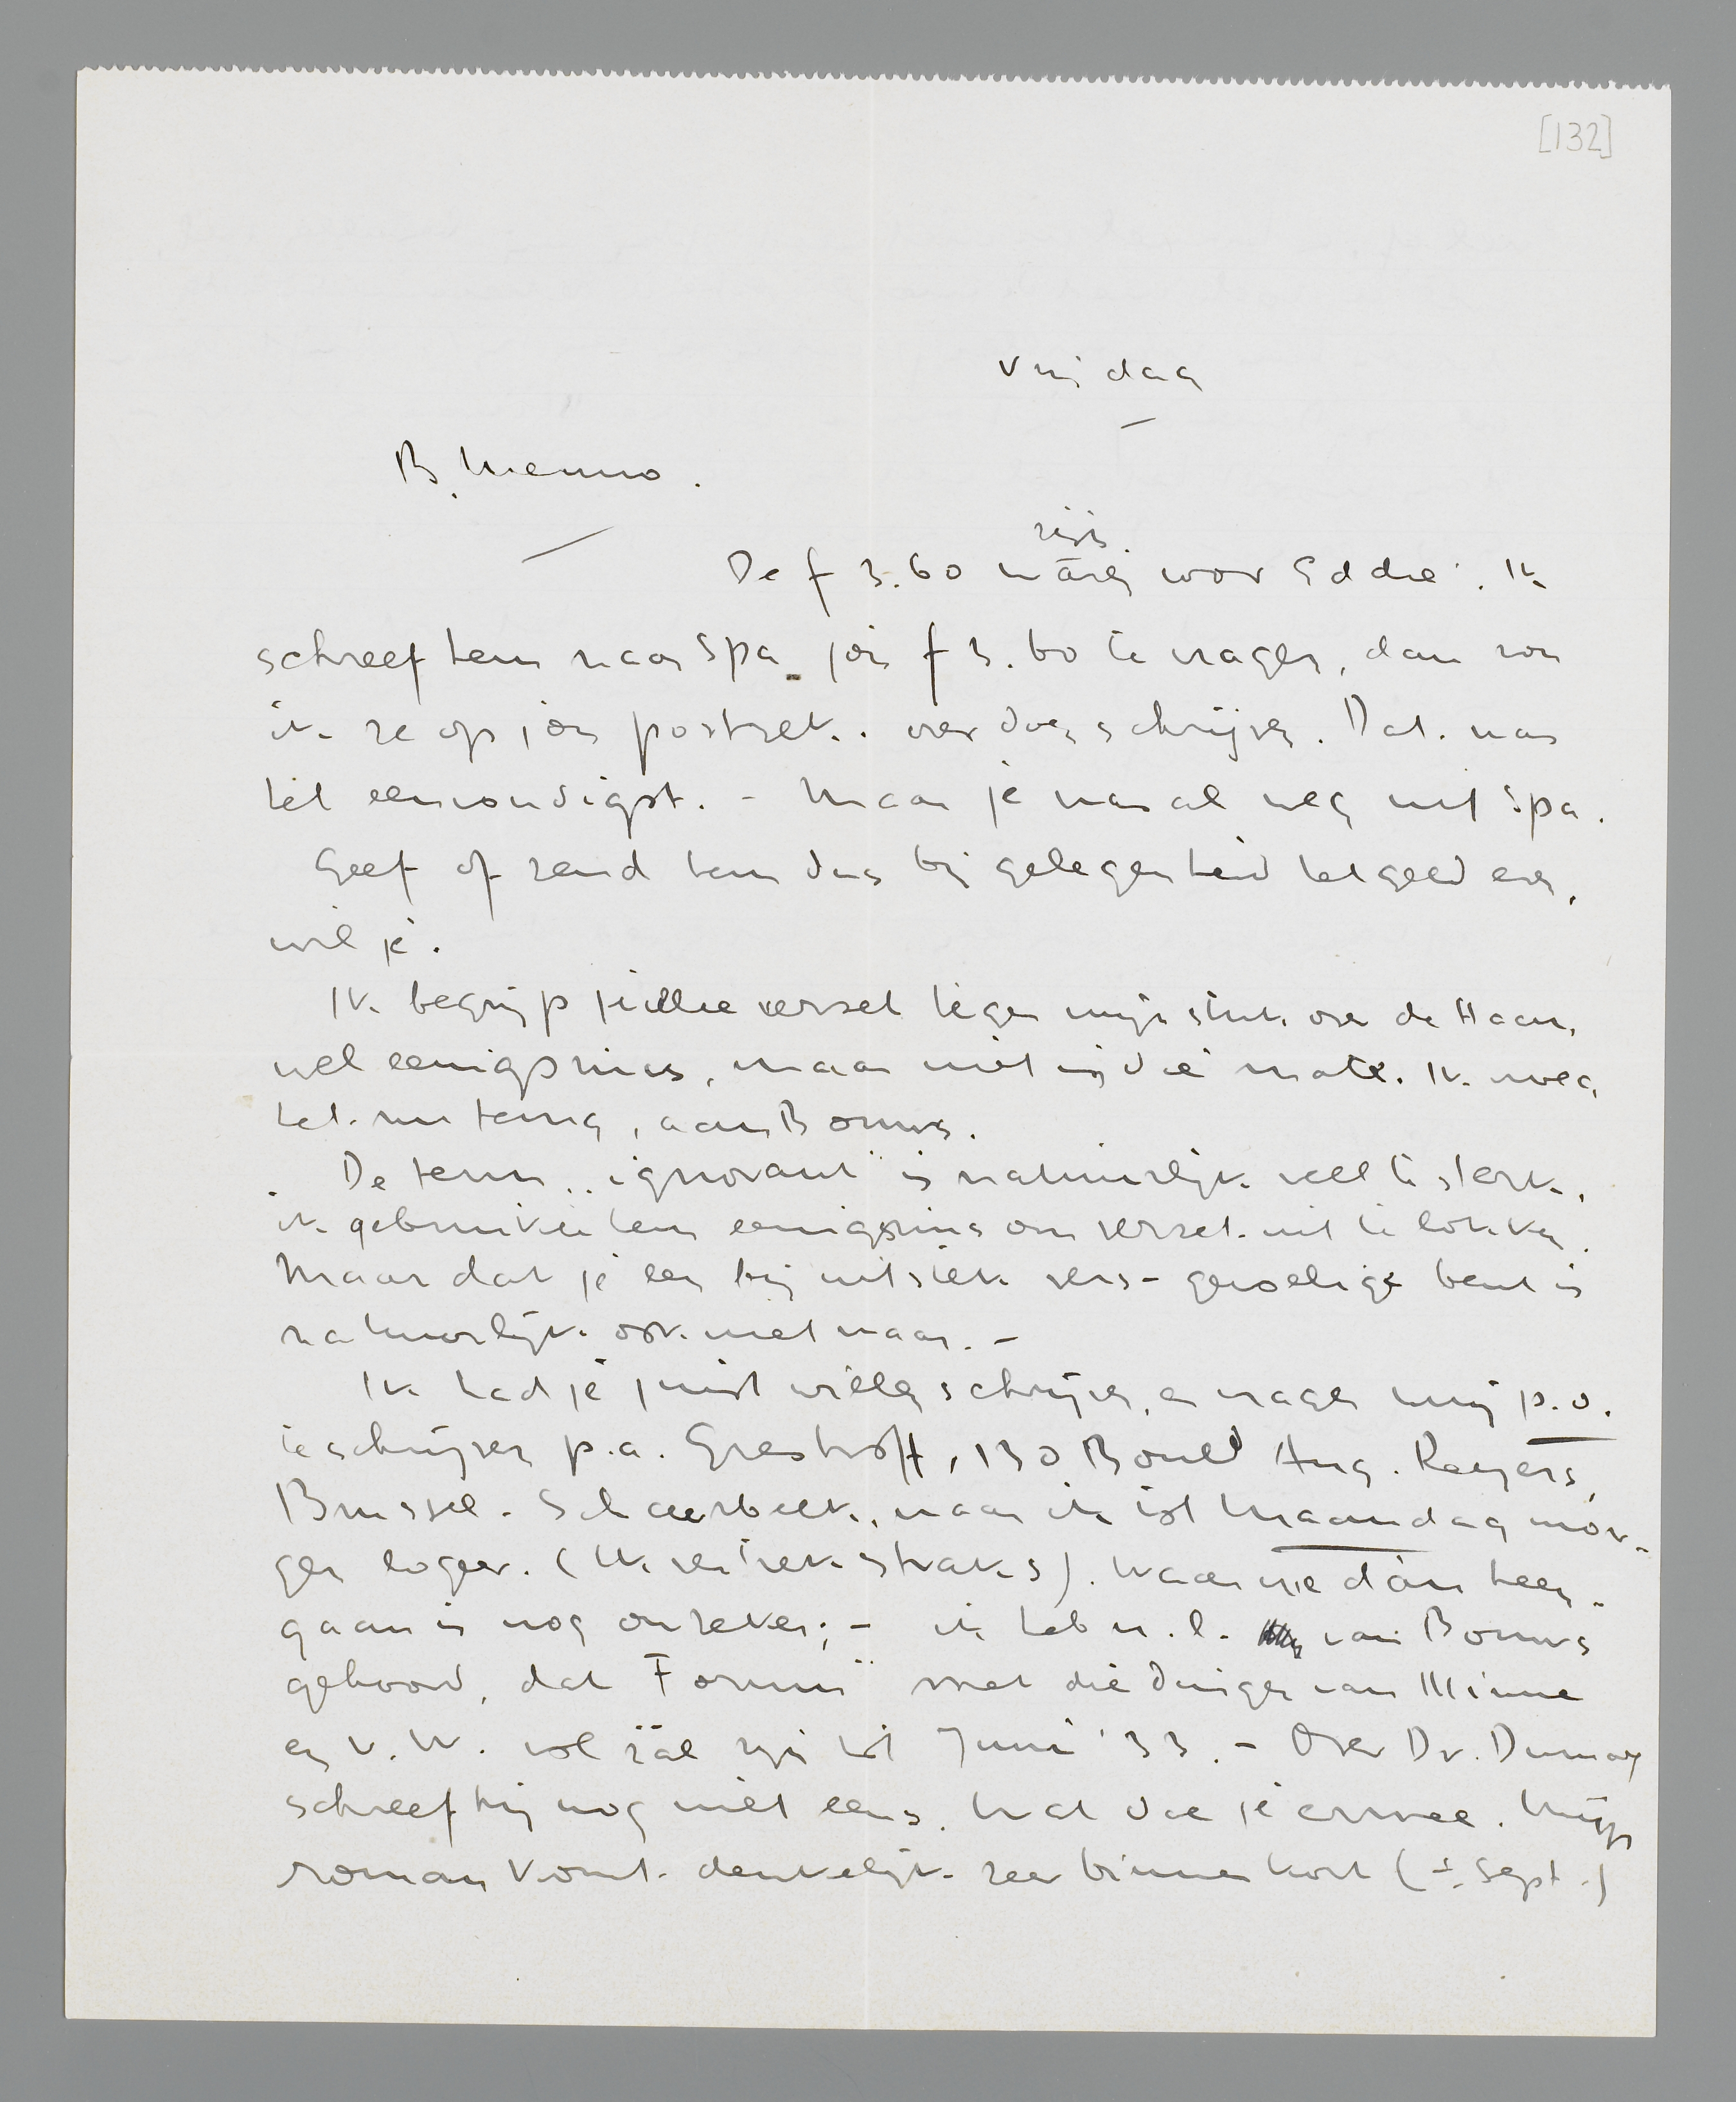 [132]
Vrijdag
B. Menno.
zijn
De f 3.60 wáren voor Eddie. Ik
schreef hem naar Spa jou f 3.60 te vragen, dan zou
ik ze op jou postrek. overdoen schrijven. Dat was
het eenvoudigst. - Maar je was al weg uit Spa.
Geef of zend hem dus bij gelegenheid het geld even,
wil je.
Ik begrijp jullie verzet tegen mijn stuk over de Haan,
wel eenigszins, maar niet in die mate. Ik vroeg
het nu terug, aan Bouws.
De term „ignorant" is natuurlijk veel te sterk,
ik gebruikte hem eenigszins om verzet uit te lokken.
Maar dat je een bij uitstek vers-gevoelige bent is
natuurlijk ook niet waar. -
Ik had je juist willen schrijven, en vragen mij p.o.
te schrijven p.a. Greshoff, 130 Bould Aug. Reyers,
Brussel-Schaerbeek, waar ik tot Maandag mor-
gen logeer. (Ik vertrek straks). Waar we dán heen-
gaan is nog onzeker; - ik heb n.l. van Bouws
gehoord, dat „Forum" met die dingen van Minne
en V.W. vol zál zijn tot Juni '33. - Over Dr. Dumay
schreef hij nog niet eens. Wat doe je ermee. Mijn
roman komt denkelijk zeer binnenkort (± Sept.)